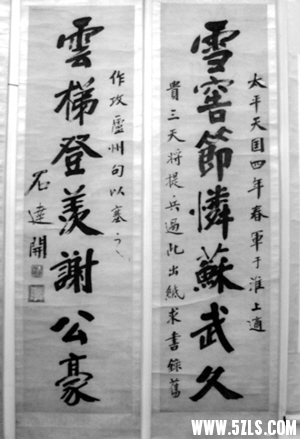 雪窖節憐蘇武久
太平天国四年春軍于淮上適
貴三天将提兵過此出紙求書錄舊
雲梯登羡謝公豪
作攻廬州句以塞
石達開
WWW.5ZLS.COM